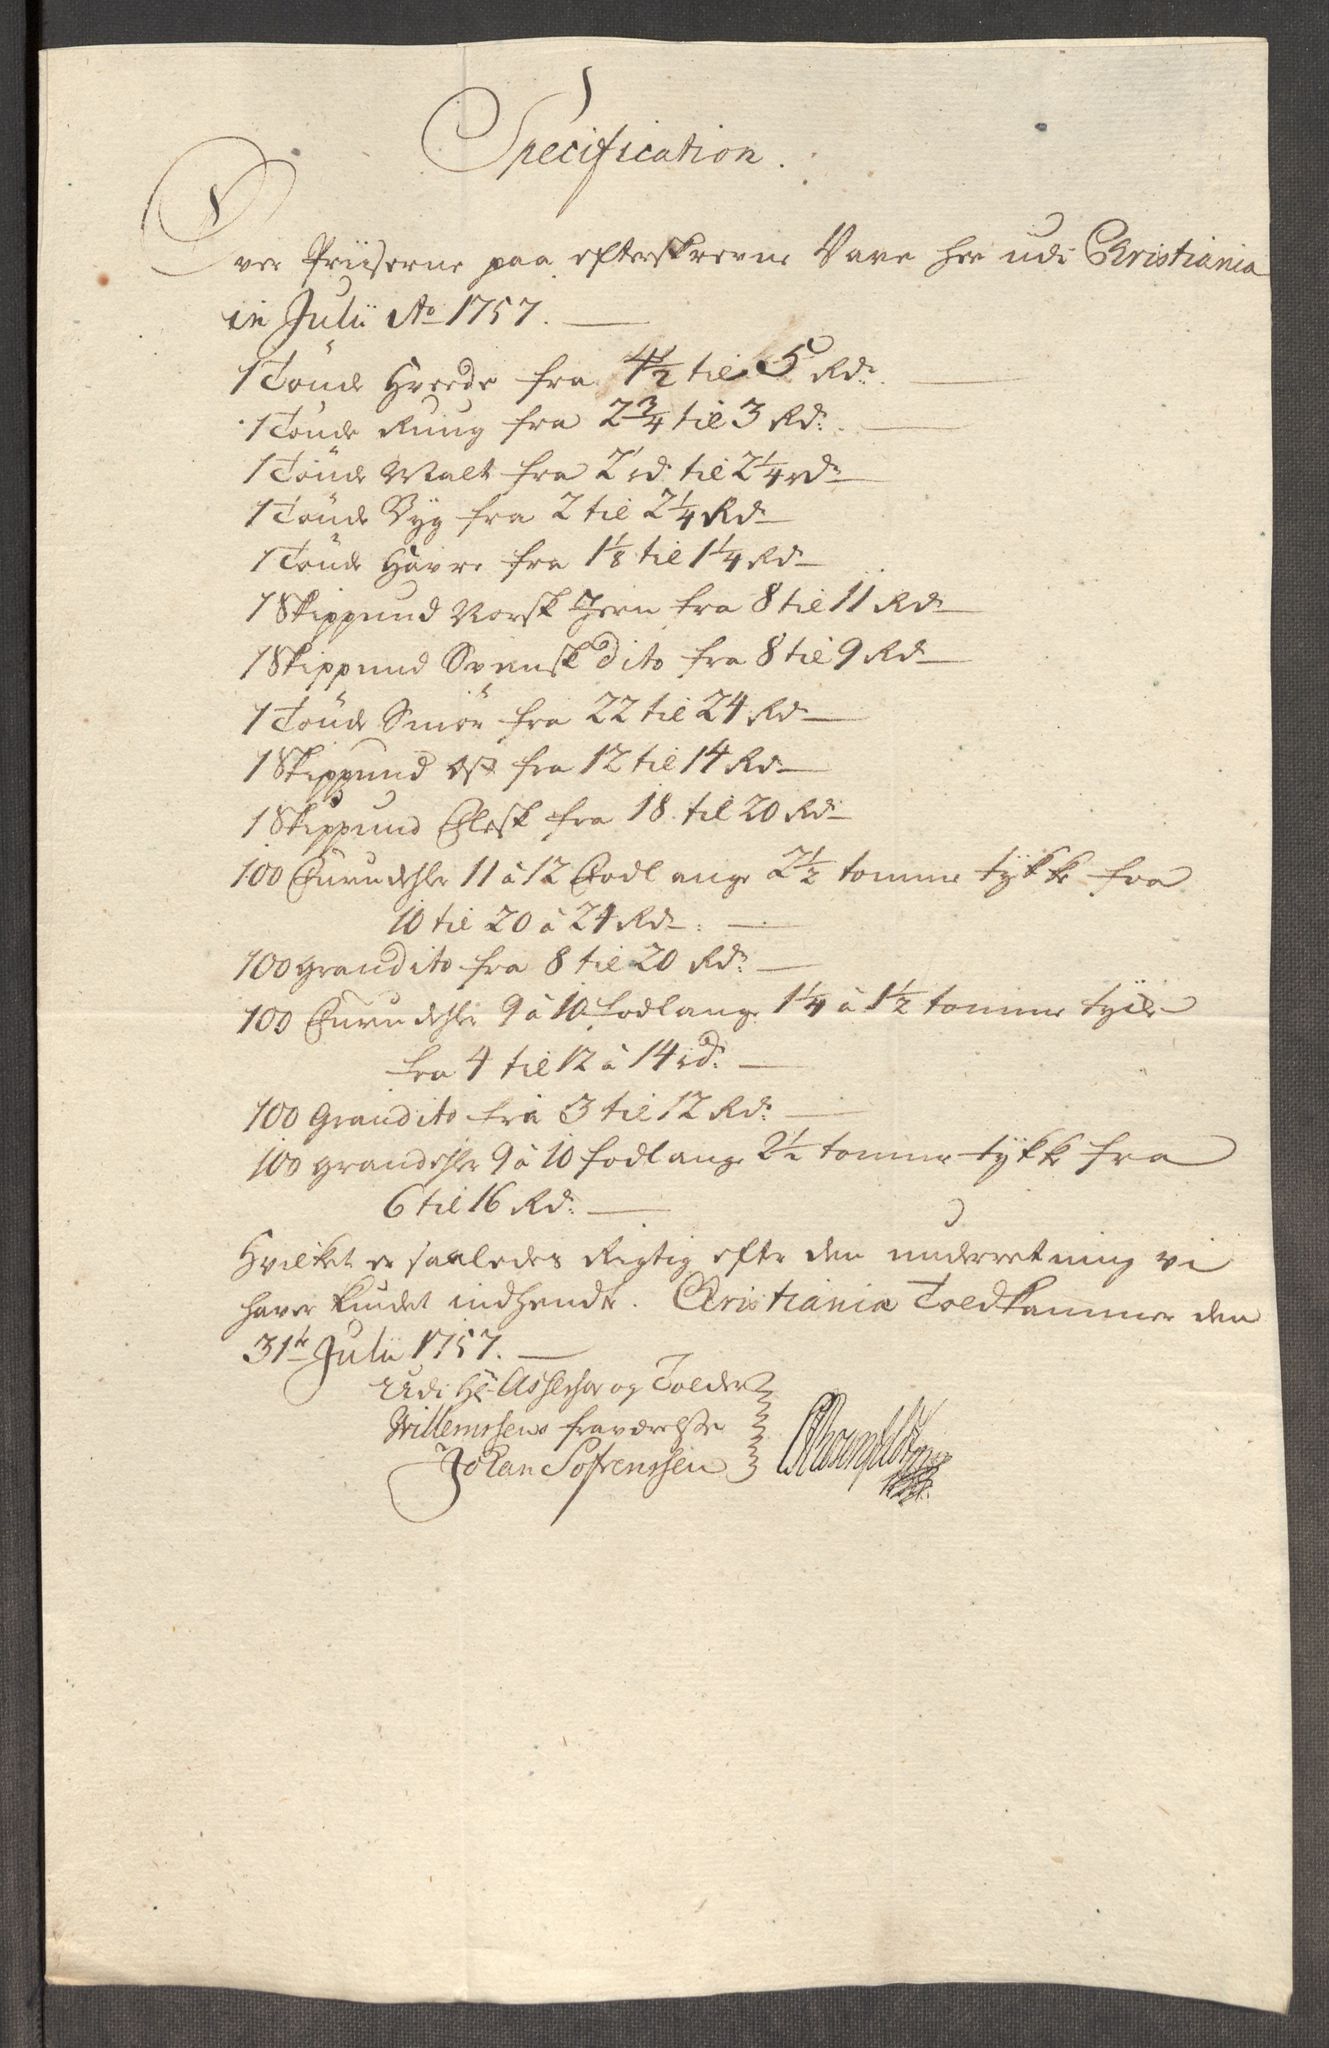 Specification.
Over Priiserne paa efterskrevne Vare her udi Christiania
in Julii Ao 1757.
1 Tönde Hveede fra 4½ til 5 Rdr.
1 Tönde Ruug fra 2¾ til 3 Rdr.
1 Tönde Malt fra 2 rd til 2¼ rdr
1 Tönde Byg fra 2 til 2¼ Rdr
1 Tönde Havre fra 1⅛ til 1¼ Rdr
1 Skippund Norsk Jern fra 8 til 11 Rdr
1 Skippund Svensk dito fra 8 til 9 Rdr
1 Tönde Smör fra 22 til 24 Rdr
1 Skippund Ost fra 12 til 14 Rdr
1 Skippund Flesk fra 18 til 20 Rdr
100 Furudehler 11 à 12 Fodlange 2½ tomme tykke fra
10 til 20 à 24 Rdr.
100 Grandito fra 8 til 20 Rdr.
100 Furudehler 9 à 10 fodlange 1¼ à 1½ tomme tycke
fra 4 til 12 à 14 rdr.
100 Grandito fra 3 til 12 Rdr.
100 Grandehler 9 à 10 fodlange 2½ tomme tykke fra
6 til 16 Rdr.
Hvilket er saaledes Rigtig efter den underretning vi
haver kundet indhendte. Christiania Toldkammer den
31te Julii 1757.
Udi Hr Assessor og Tolder
Willemsens fraværelse
Johan Sofrenssen